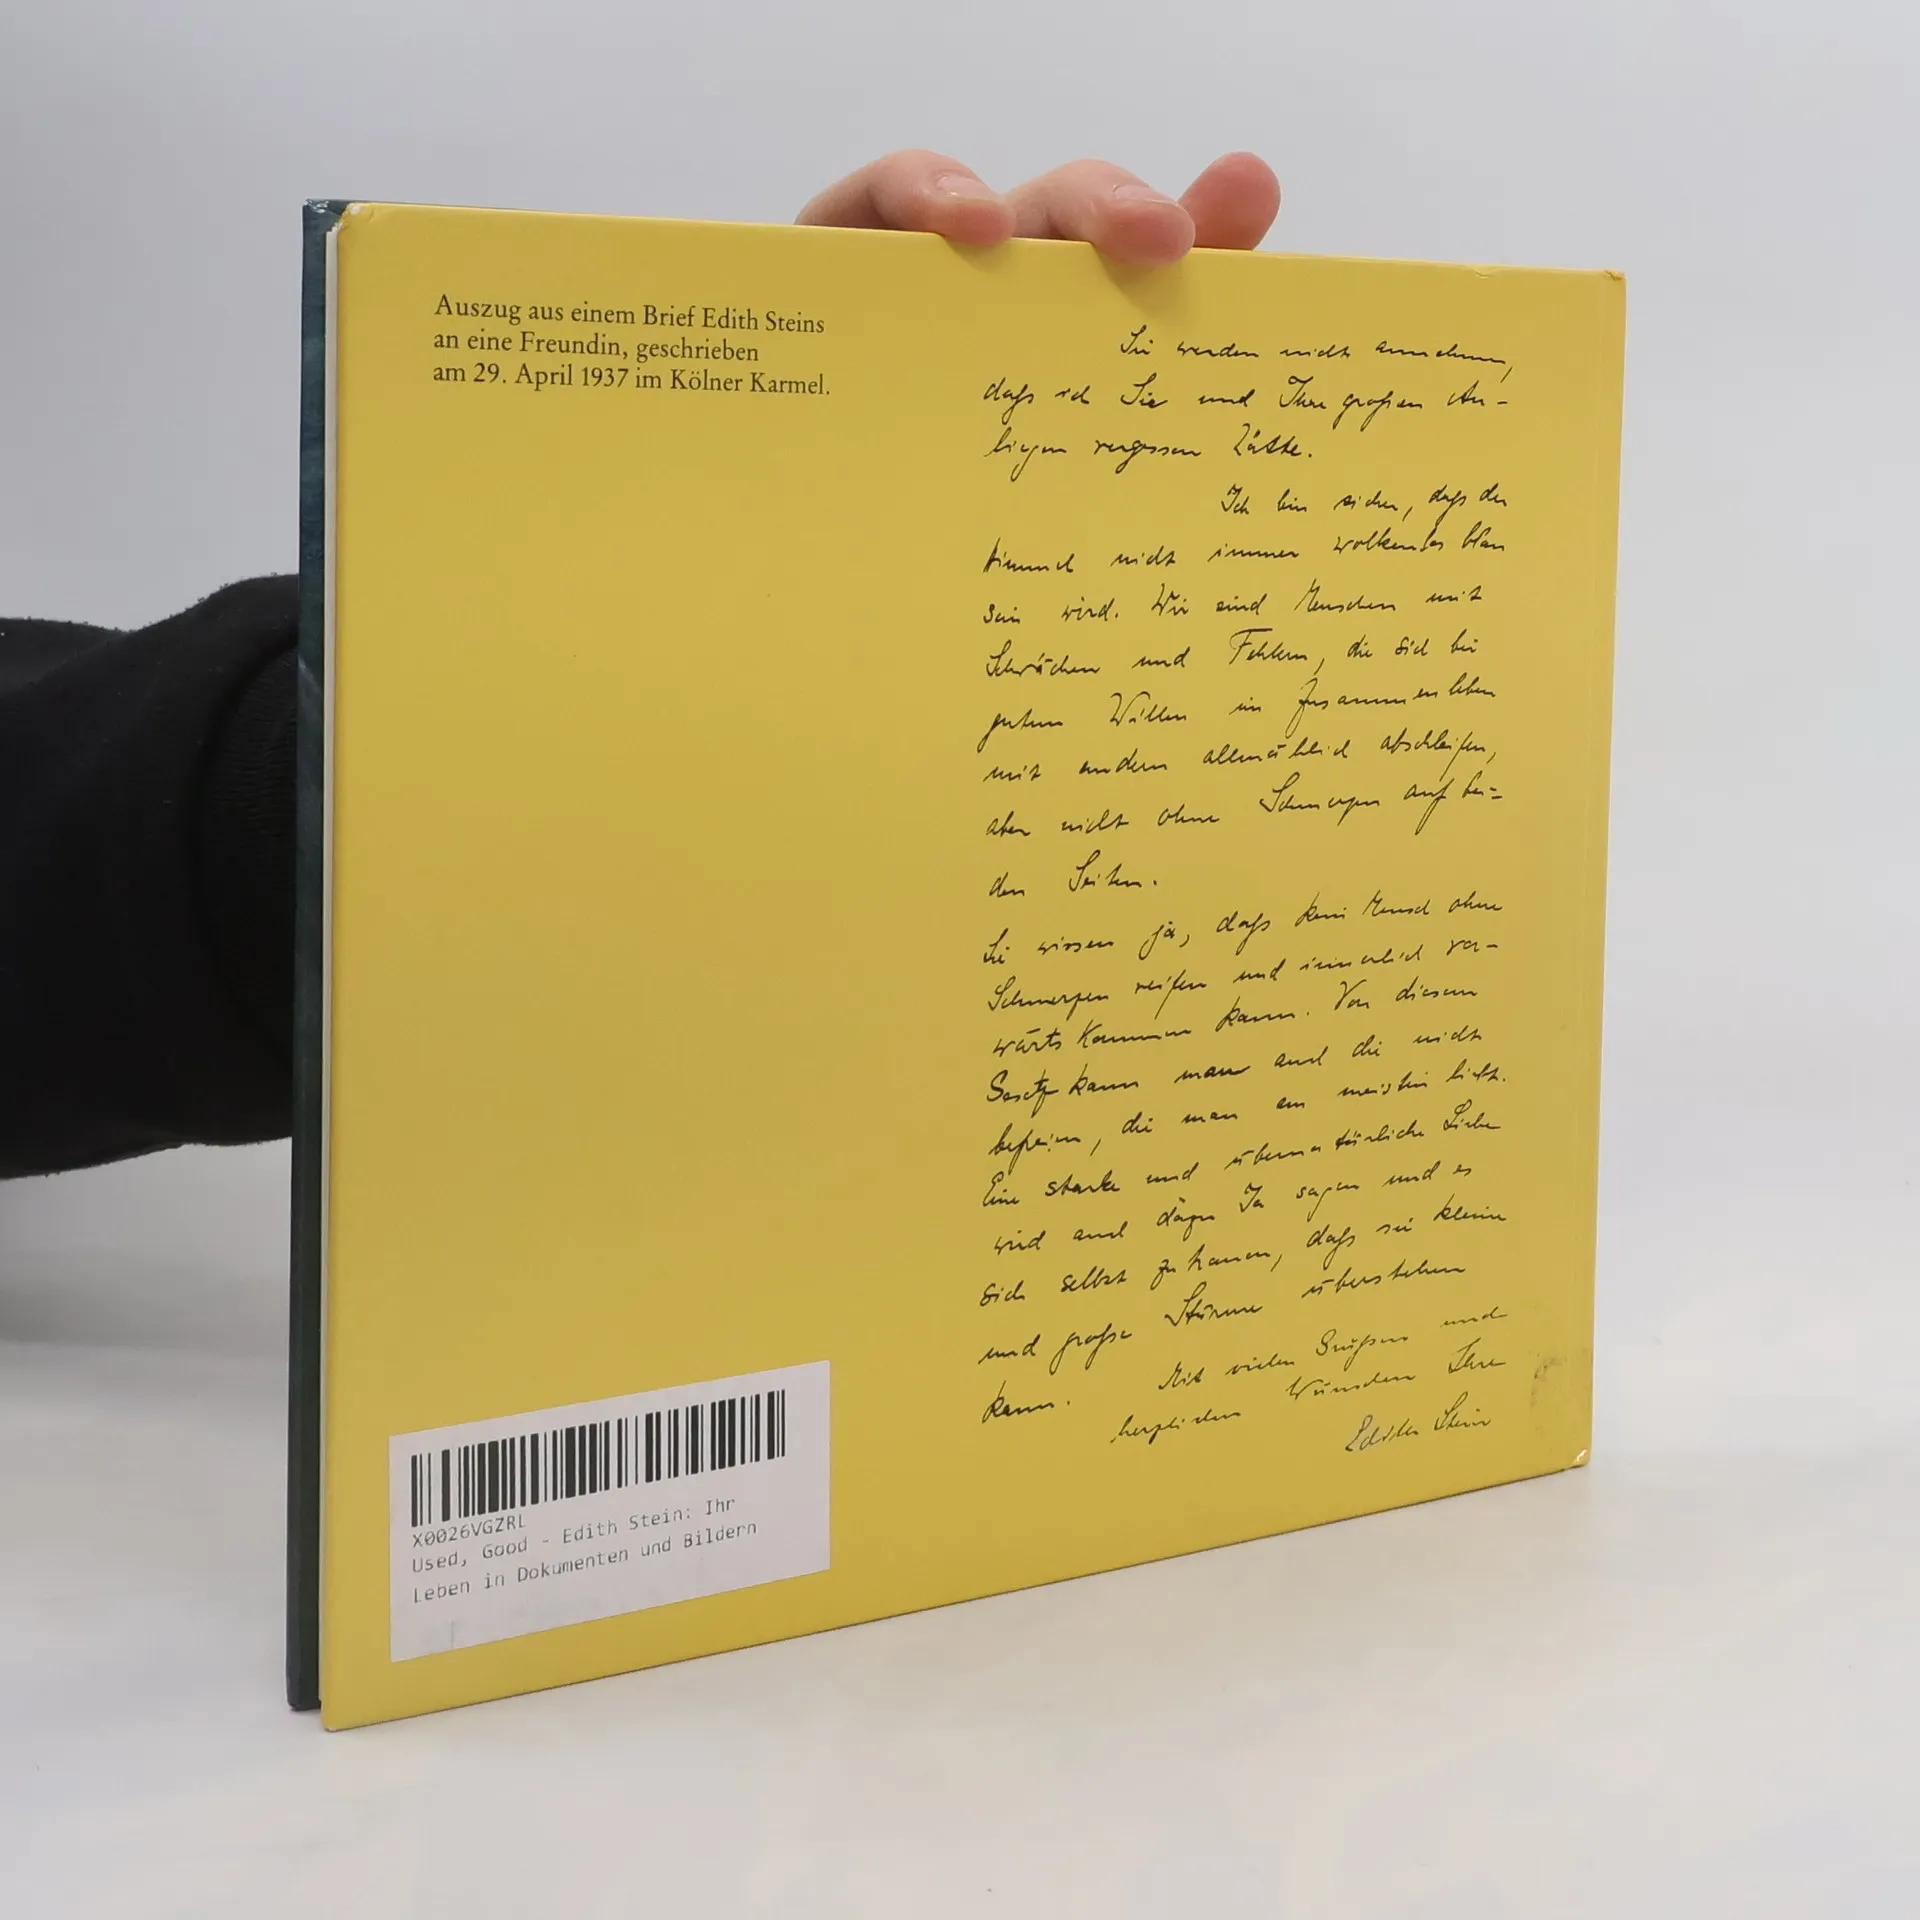 Auszug aus einem Brief Edith Steins
an eine Freundin, geschrieben
am 29. April 1937 im Kölner Karmel.
Sie werden nicht annehmen,
daß ich Sie und Ihre großen An-
liegen vergessen hätte.
Ich bin sicher, daß der
Himmel nicht immer wolkenlos blau
sein wird. Wir sind Menschen mit
Schwächen und Fehlern, die sich bei
gutem Willen im Zusammenleben
mit andern allmählich abschleifen,
aber nicht ohne Schmerzen auf bei-
den Seiten.
Sie wissen ja, daß kein Mensch ohne
Schmerzen reifen und innerlich vor-
wärts kommen kann. Von diesem
Gesetz kann man auch die nicht
befreien, die man am meisten liebt.
Eine starke und übernatürliche Liebe
wird auch dazu Ja sagen und es
sich selbst zutrauen, daß sie kleine
und große Stürme überstehen
kann.
Mit vielen Grüßen und
herzlichen Wünschen Ihre
Edith Stein
X0026VGZRL
Used, Good - Edith Stein: Ihr
Leben in Dokumenten und Bildern